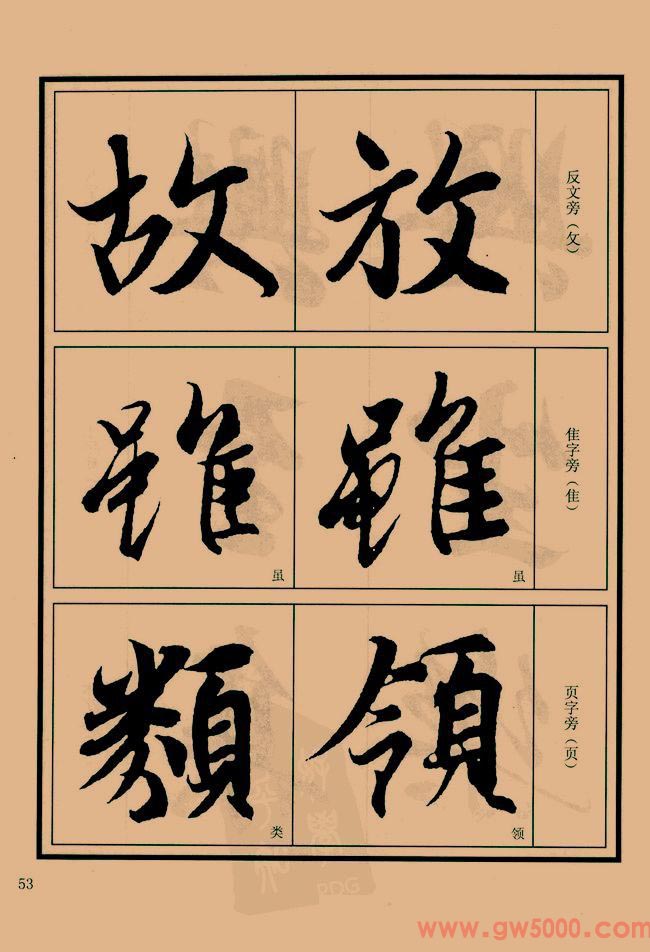 反文旁（攵）
放
故
隹字旁（隹）
雖
虽
雖
虽
页字旁（页）
領
领
類
类
53
PDG
www.gw5000.com